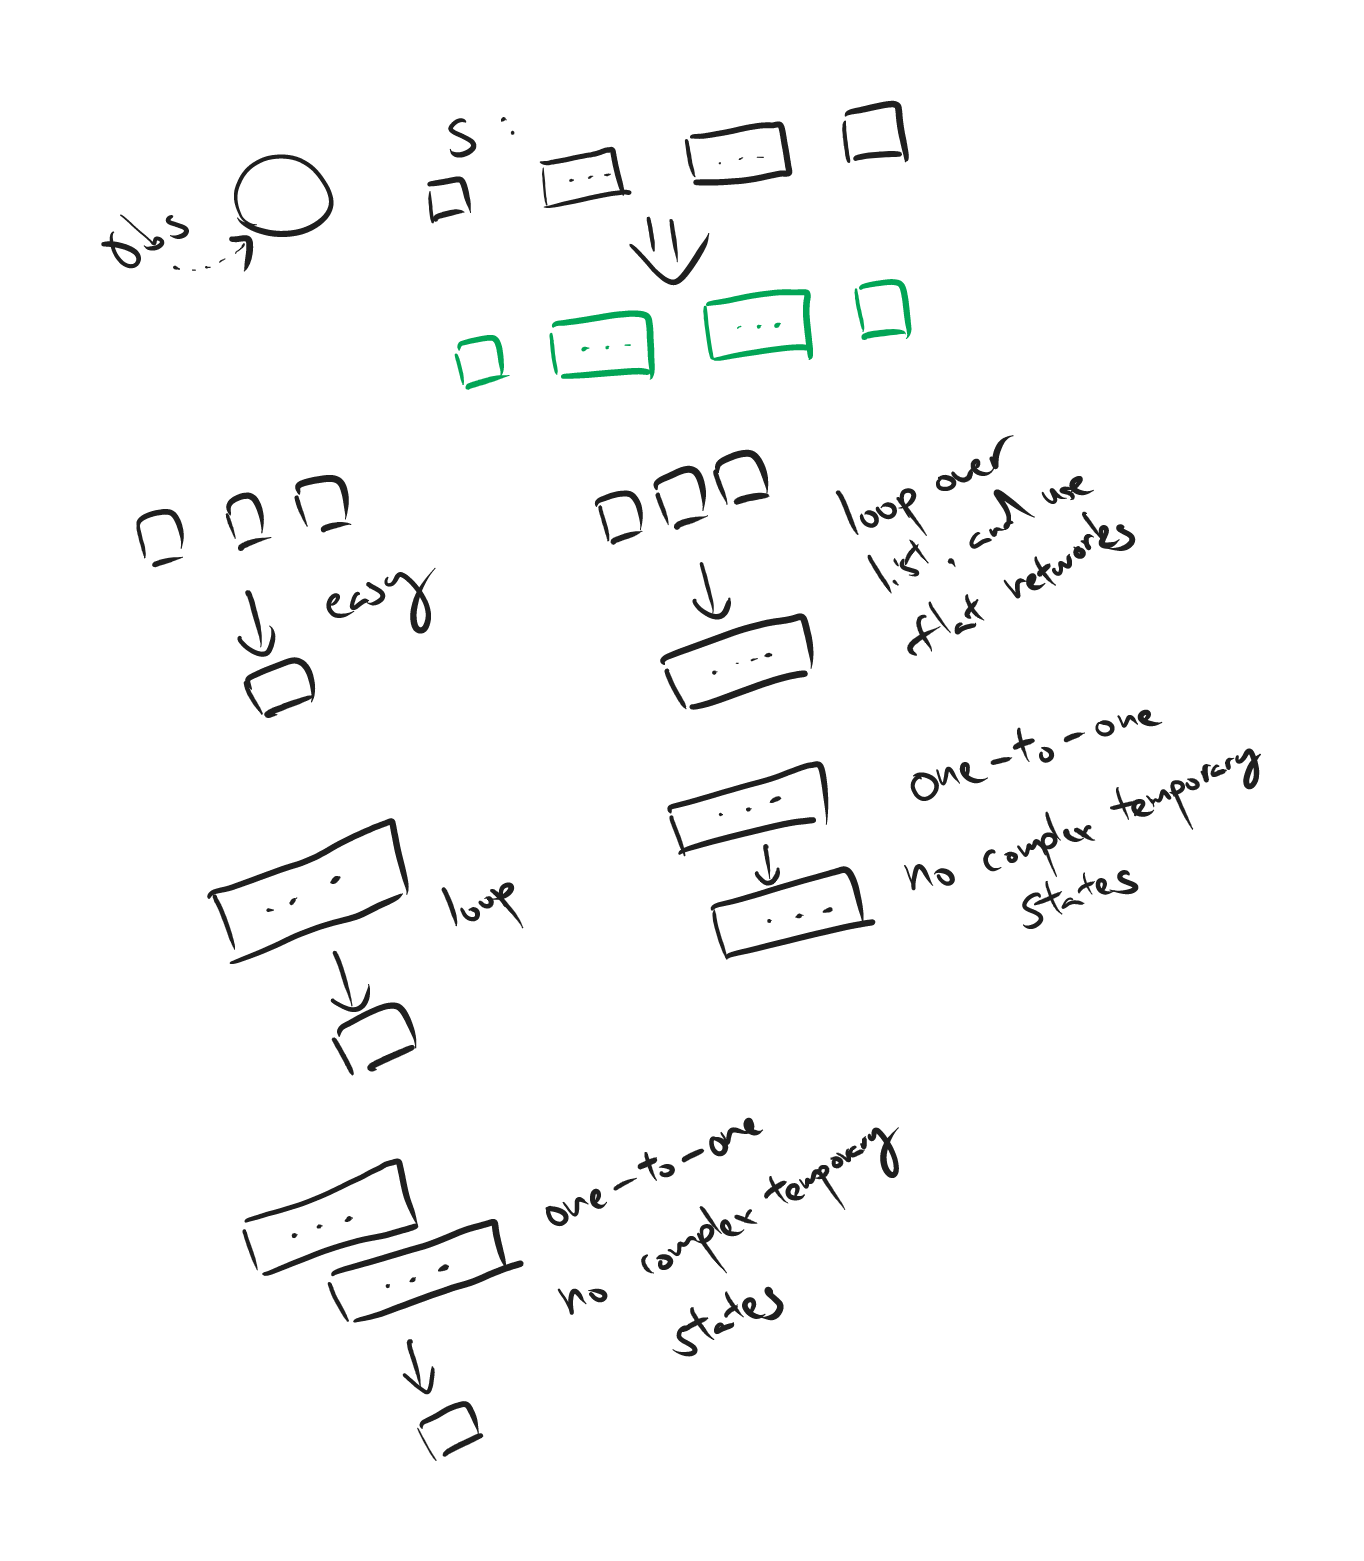 S :
obs
loop over
list, and use
flat networks
easy
one-to-one
no complex temporary
states
loop
one-to-one
no complex temporary
states